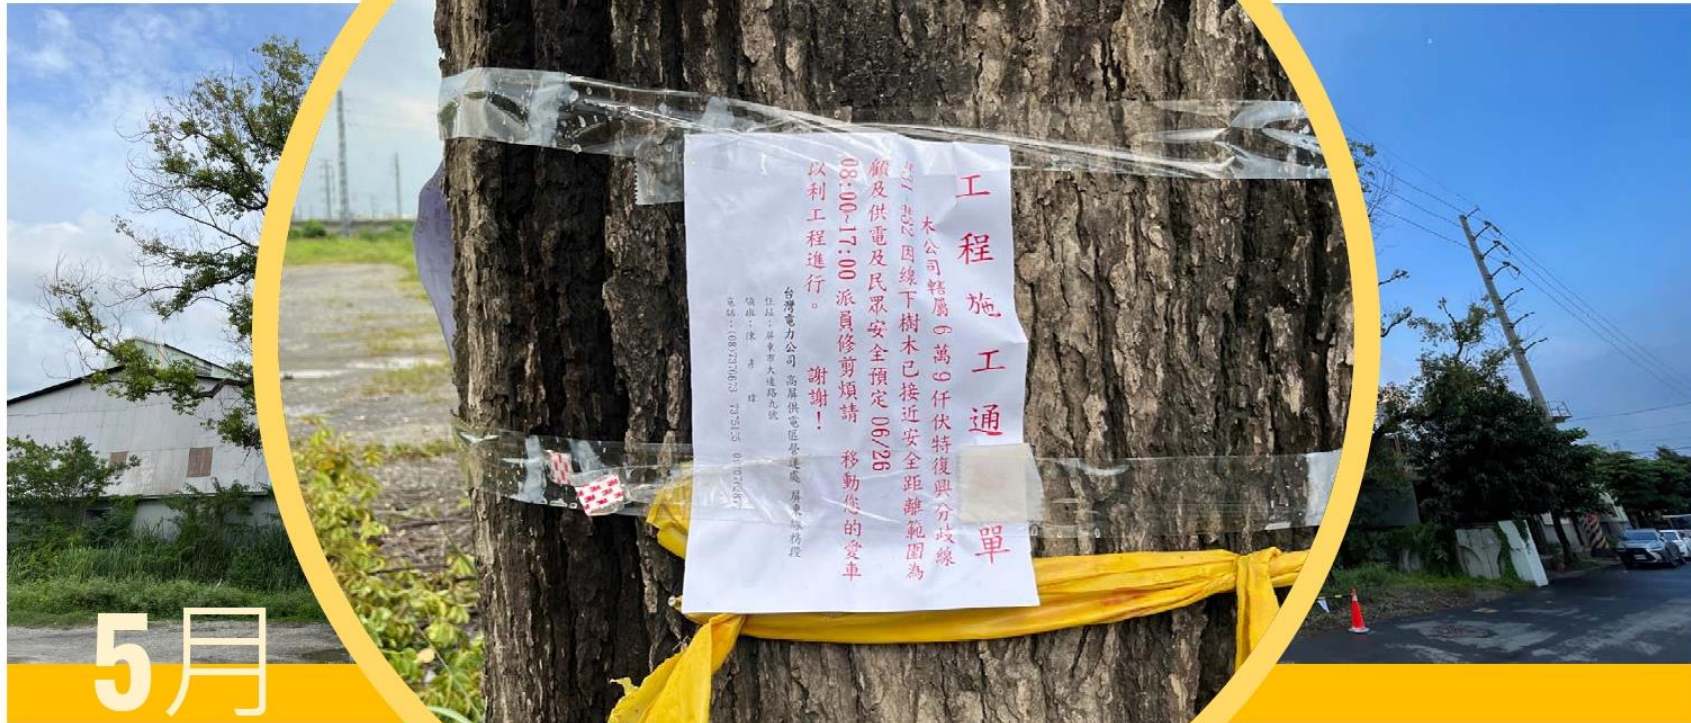 工程施工通 單
本公司轄屬 6 萬 9 仟伏特復興分歧線
因線下樹木已接近安全距離範圍為
顧及供電及民眾安全預定 06/26
08:00~17:00 派員修剪煩請 移動您的愛車
以利工程進行。 謝謝!
台灣電力公司 高屏供電區營運處 屏東線務段
住址：屏東市大連路九號
領班：陳
電話：(08)7376673
5月